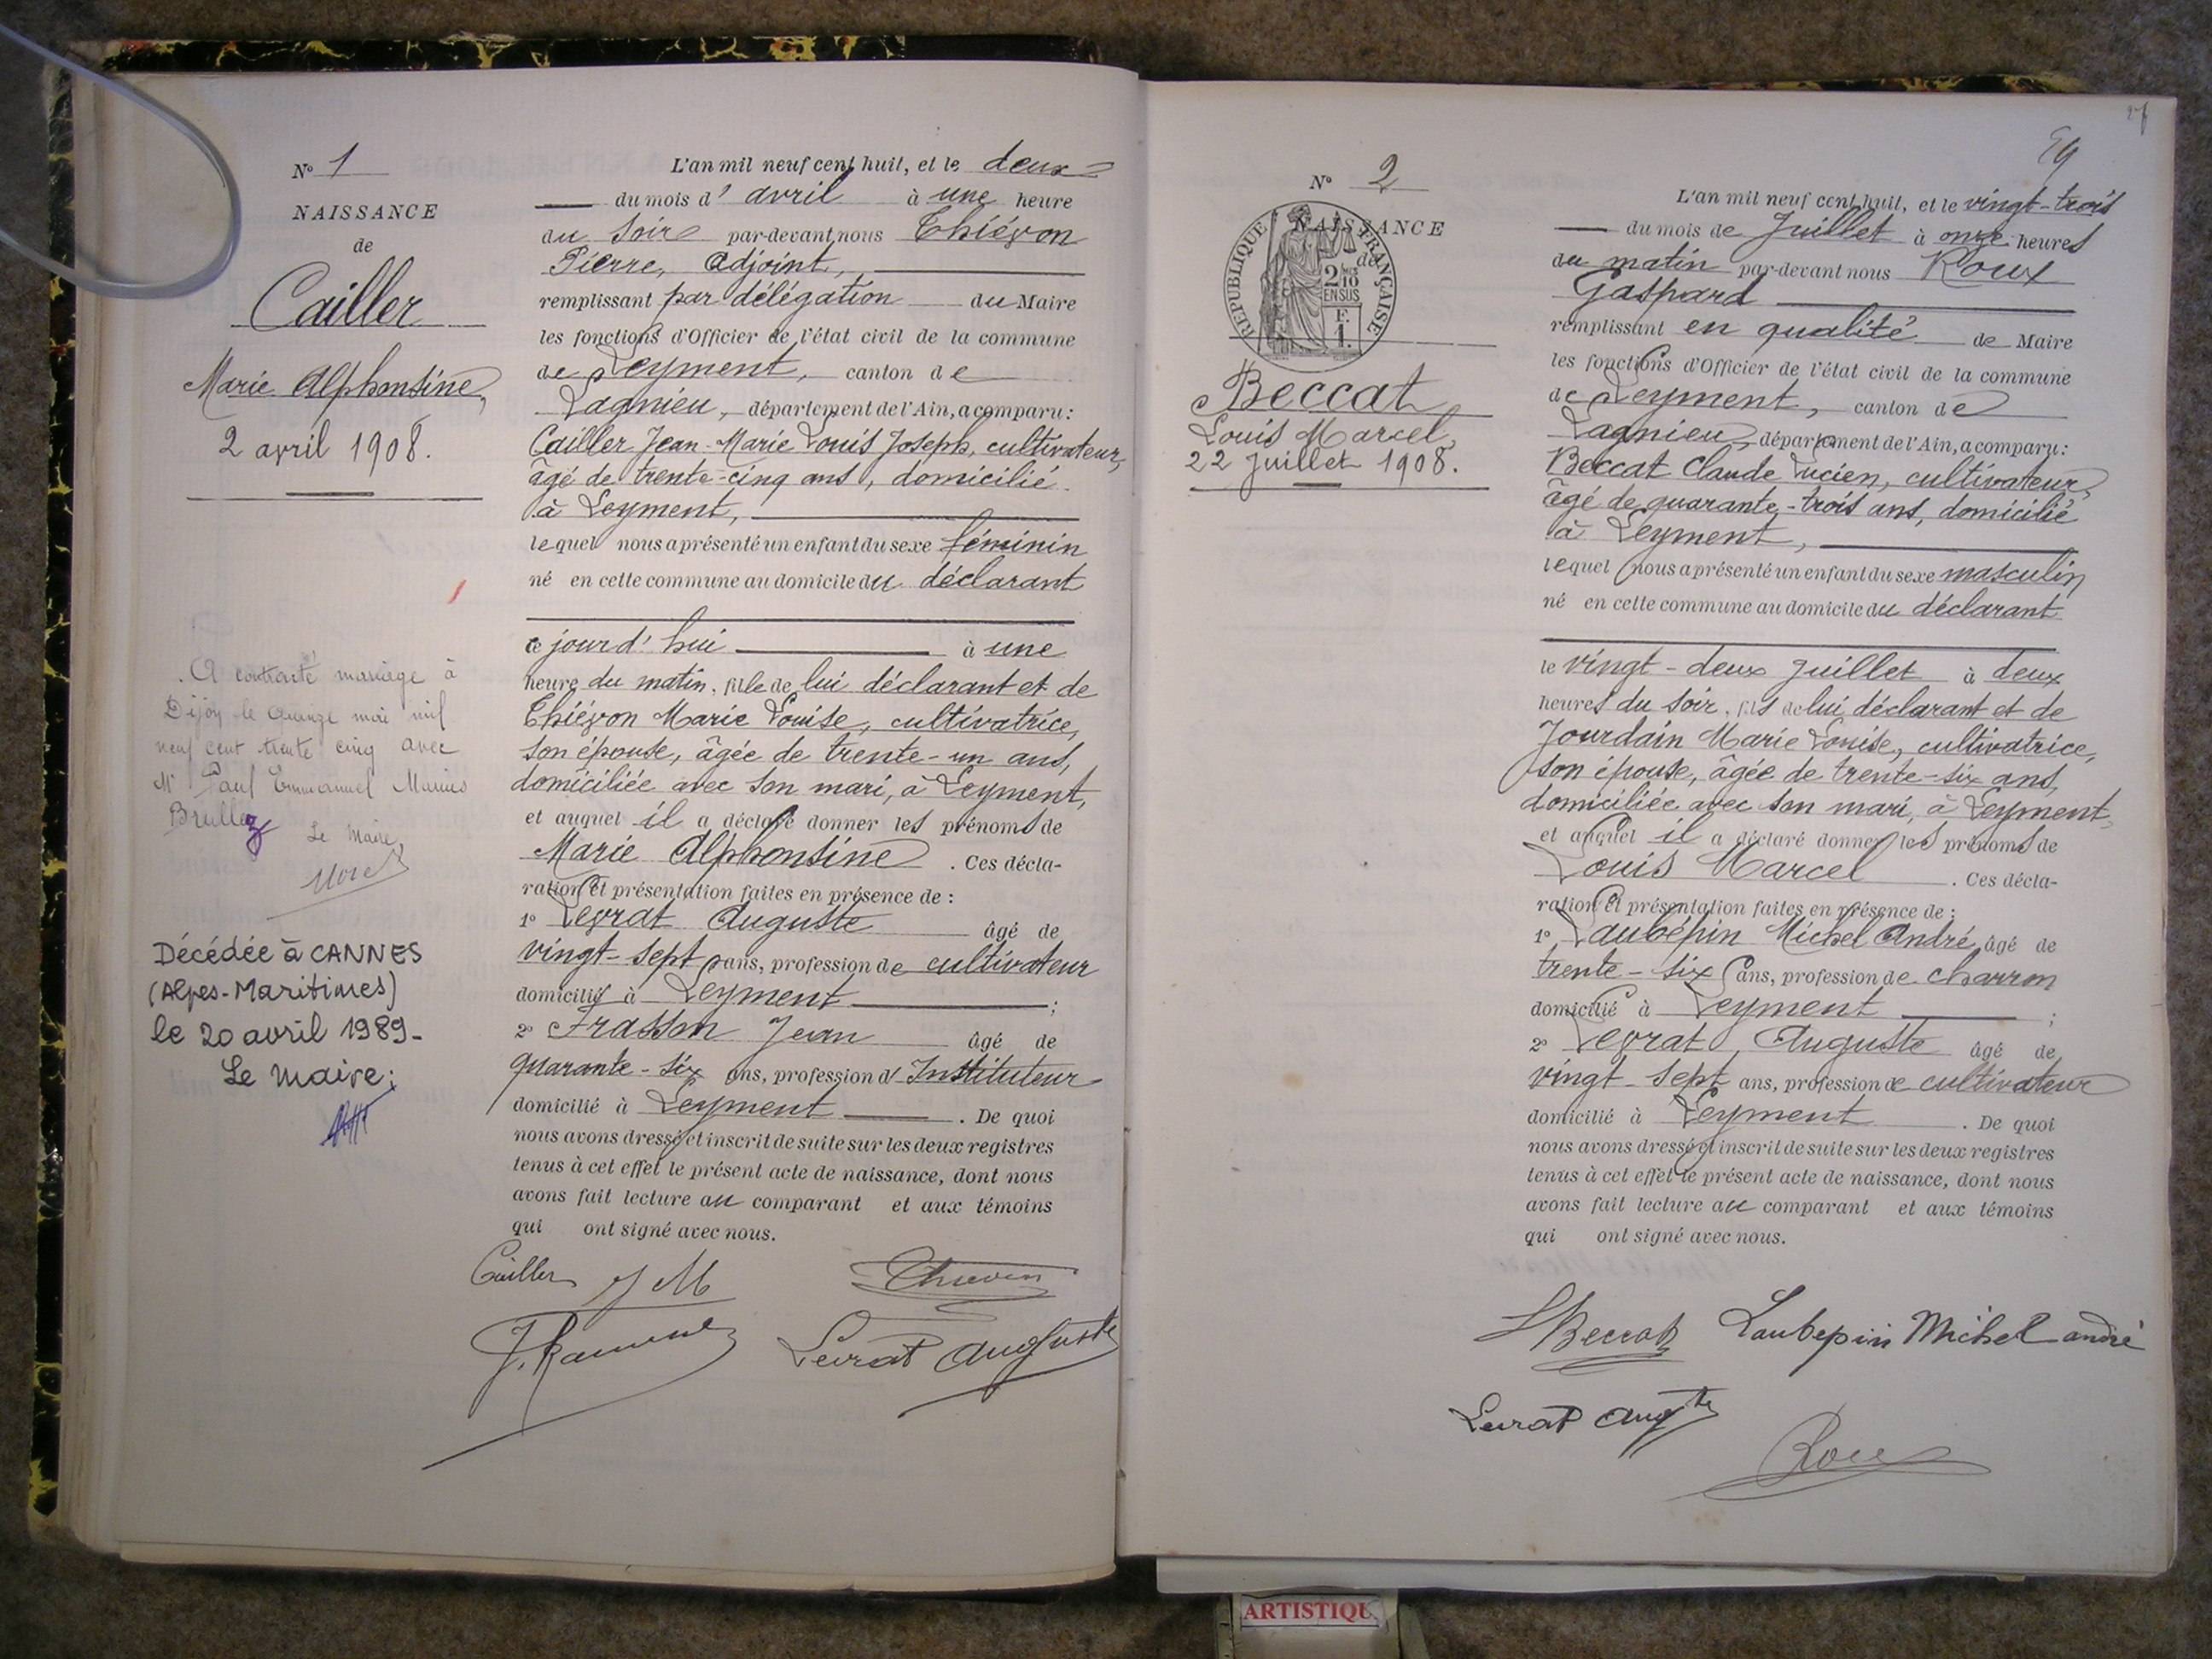 N° 1
NAISSANCE
de
Cailler
Marie Alphonsine,
2 avril 1908.
A contracté mariage à
Dijon le quinze mai mil
neuf cent trente cinq avec
Mr Paul Emmanuel Marius
Brullez
Le Maire,
Morel
Décédée à CANNES
(Alpes-Maritimes)
le 20 avril 1989-
Le Maire:
L'an mil neuf cent huit, et le deux
du mois d' avril à une heure
du soir par-devant nous Thiévon
Pierre, Adjoint,
remplissant par délégation du Maire
les fonctions d'Officier de l'état civil de la commune
de Leyment, canton de
Lagnieu, département de l'Ain, a comparu:
Cailler Jean-Marie Louis Joseph, cultivateur,
âgé de trente-cinq ans, domicilié
à Leyment,
lequel nous a présenté un enfant du sexe féminin
né en cette commune au domicile du déclarant
ce jourd'hui à une
heure du matin, fille de lui déclarant et de
Thiévon Marie Louise, cultivatrice,
son épouse, âgée de trente-un ans,
domiciliée avec son mari, à Leyment,
et auquel il a déclaré donner les prénoms de
Marie Alphonsine. Ces décla-
ration et présentation faites en présence de :
1° Levrat Auguste âgé de
vingt-sept ans, profession de cultivateur
domicilié à Leyment ;
2° Frasson Jean âgé de
quarante-six ans, profession d' Instituteur
domicilié à Leyment. De quoi
nous avons dressé et inscrit de suite sur les deux registres
tenus à cet effet le présent acte de naissance, dont nous
avons fait lecture au comparant et aux témoins
qui ont signé avec nous.
Cailler J M Thievon
Levrat Auguste
27
59
N° 2
NAISSANCE
de
RÉPUBLIQUE FRANÇAISE
2/10
EN SUS
F.
1.
Beccat
Louis Marcel,
22 Juillet 1908.
L'an mil neuf cent huit, et le vingt-trois
du mois de Juillet à onze heures
du matin par-devant nous Roux
Gaspard
remplissant en qualité de Maire
les fonctions d'Officier de l'état civil de la commune
de Leyment, canton de
Lagnieu, département de l'Ain, a comparu:
Beccat Claude Lucien, cultivateur,
âgé de quarante-trois ans, domicilié
à Leyment,
lequel nous a présenté un enfant du sexe masculin
né en cette commune au domicile du déclarant
le vingt-deux Juillet à deux
heures du soir, fils de lui déclarant et de
Jourdain Marie Louise, cultivatrice,
son épouse, âgée de trente-six ans,
domiciliée avec son mari, à Leyment,
et auquel il a déclaré donner les prénoms de
Louis Marcel. Ces décla-
ration et présentation faites en présence de :
1° Laubépin Michel André, âgé de
trente-six ans, profession de charron
domicilié à Leyment ;
2° Levrat Auguste âgé de
vingt-sept ans, profession de cultivateur
domicilié à Leyment. De quoi
nous avons dressé et inscrit de suite sur les deux registres
tenus à cet effet le présent acte de naissance, dont nous
avons fait lecture au comparant et aux témoins
qui ont signé avec nous.
Beccat Laubepin Michel andré
Levrat Augte
Roux
ARTISTIQU